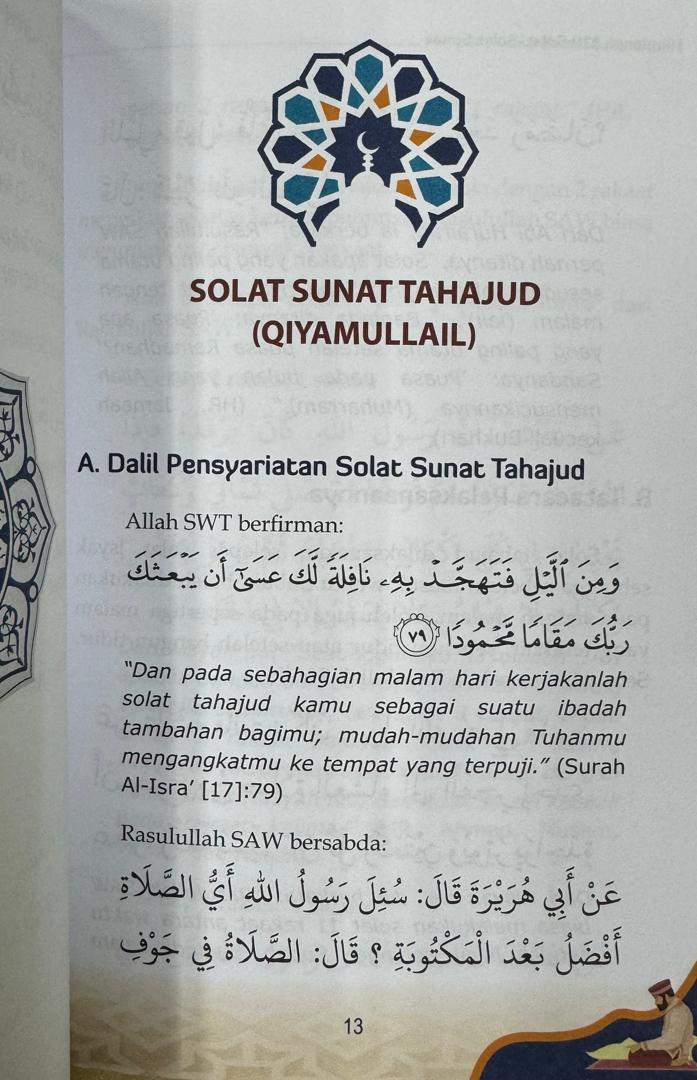 SOLAT SUNAT TAHAJUD
(QIYAMULLAIL)
A. Dalil Pensyariatan Solat Sunat Tahajud
Allah SWT berfirman:
وَمِنَ ٱلَّيْلِ فَتَهَجَّدْ بِهِۦ نَافِلَةً لَّكَ عَسَىٰٓ أَن يَبْعَثَكَ
رَبُّكَ مَقَامًا مَّحْمُودًا ٧٩
“Dan pada sebahagian malam hari kerjakanlah
solat tahajud kamu sebagai suatu ibadah
tambahan bagimu; mudah-mudahan Tuhanmu
mengangkatmu ke tempat yang terpuji.” (Surah
Al-Isra’ [17]:79)
Rasulullah SAW bersabda:
عَنْ أَبِي هُرَيْرَةَ قَالَ: سُئِلَ رَسُولُ اللهِ أَيُّ الصَّلَاةِ
أَفْضَلُ بَعْدَ الْمَكْتُوبَةِ ؟ قَالَ: الصَّلَاةُ فِي جَوْفِ
13